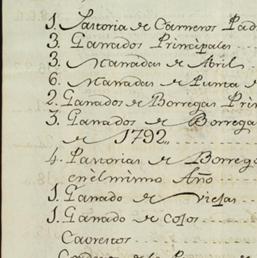 1. Pastoria de Carneros Pad
3. Ganados Principales
3. Manadas de Abril
6. Manadas de Punta de
2. Ganados de Borregas Prin
3. Ganados de Borrega
de 1792,,
4. Pastorias de Borreg
en el mismo Año
1. Ganado de Viejas
1. Ganado de Cojos